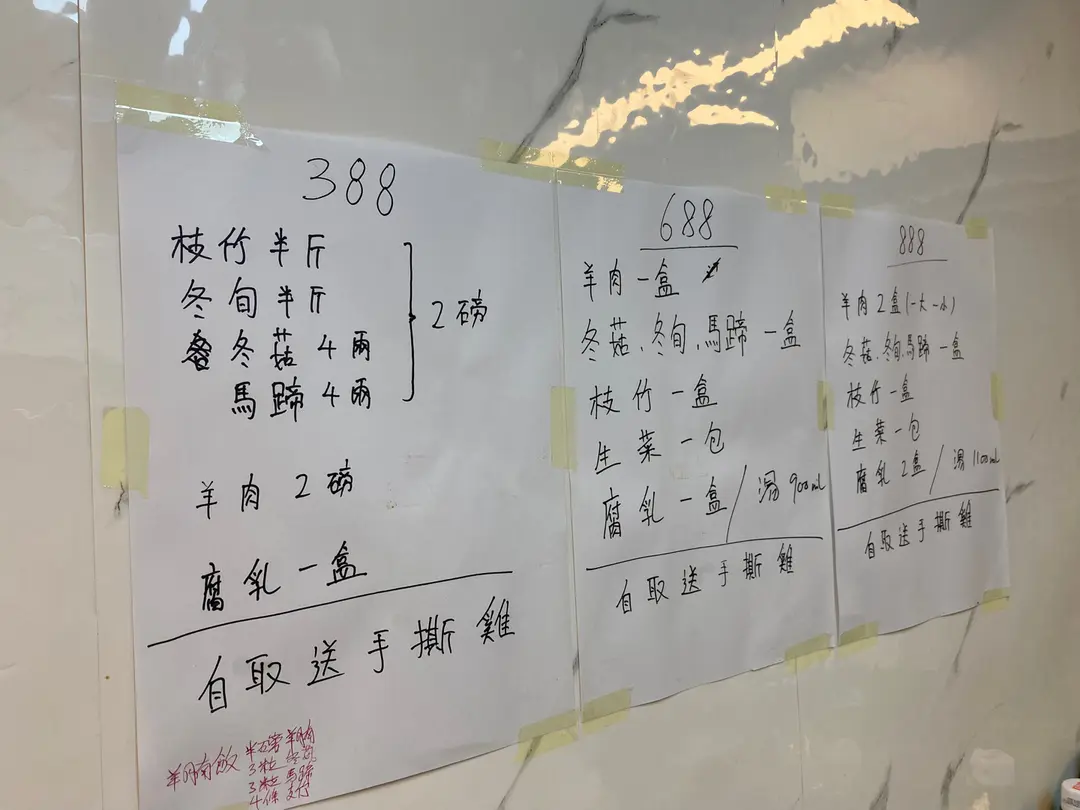 388
枝竹半斤
冬旬半斤
冬菇4兩
馬蹄4兩
2磅
羊肉2磅
腐乳一盒
自取送手撕雞
羊腩飯
半磅羊腩
3粒冬菇
3粒馬蹄
4條支付
688
羊肉一盒
冬菇、冬旬、馬蹄一盒
枝竹一盒
生菜一包
腐乳一盒/湯900mL
自取送手撕雞
888
羊肉2盒(一大一小)
冬菇、冬旬、馬蹄一盒
枝竹一盒
生菜一包
腐乳2盒/湯1100mL
自取送手撕雞